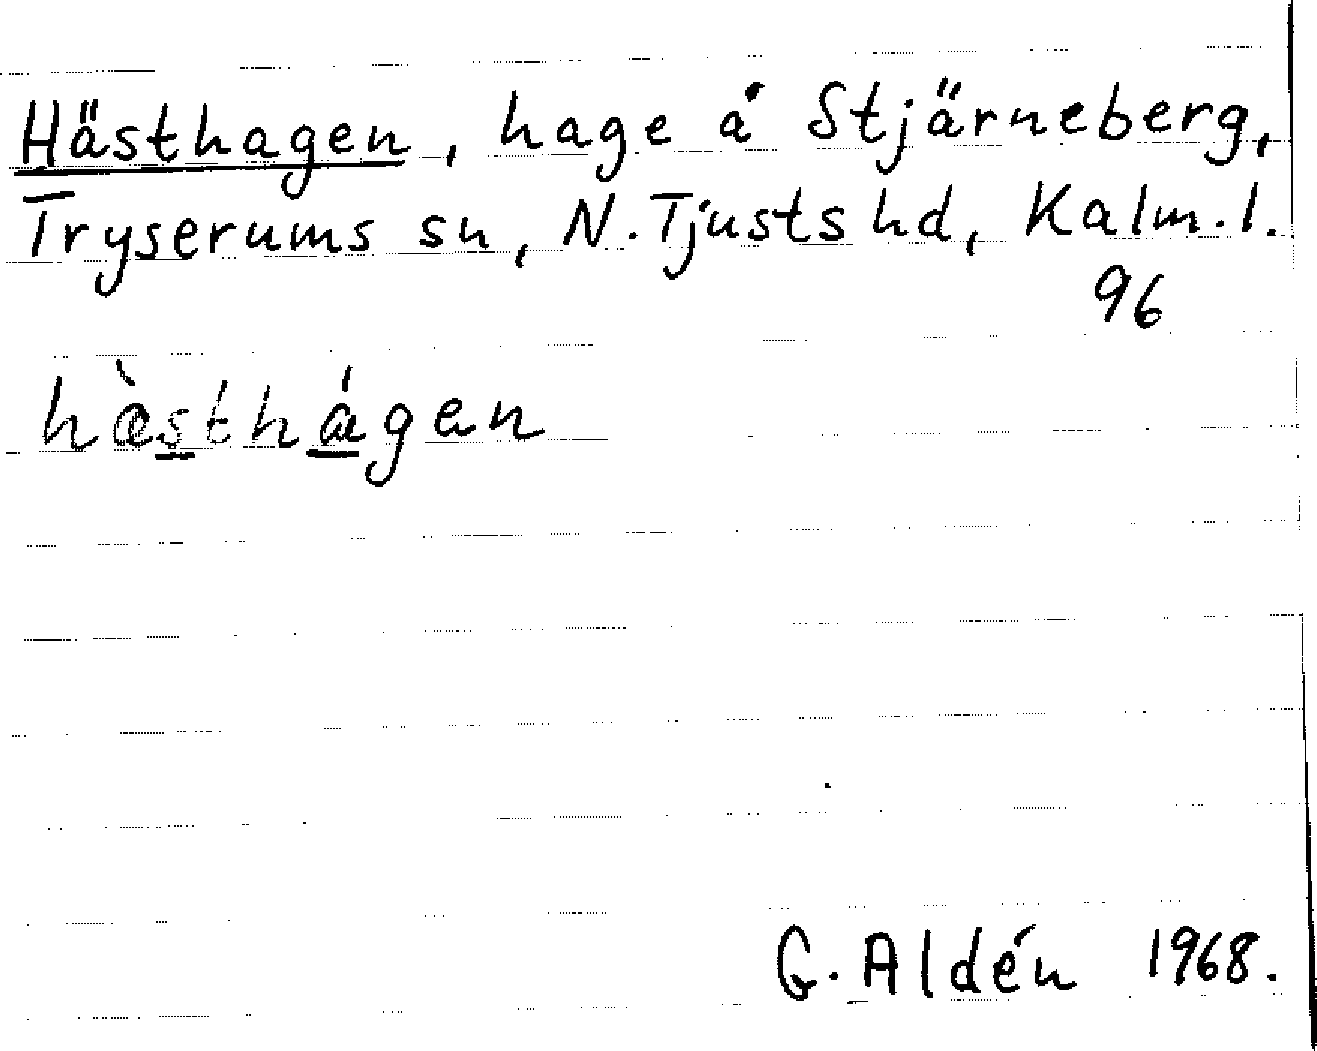 Hästhagen, hage å Stjärneberg,
Tryserums sn, N. Tjusts hd, Kalm. l.
96
hæ̀sthágen
G. Aldén 1968.